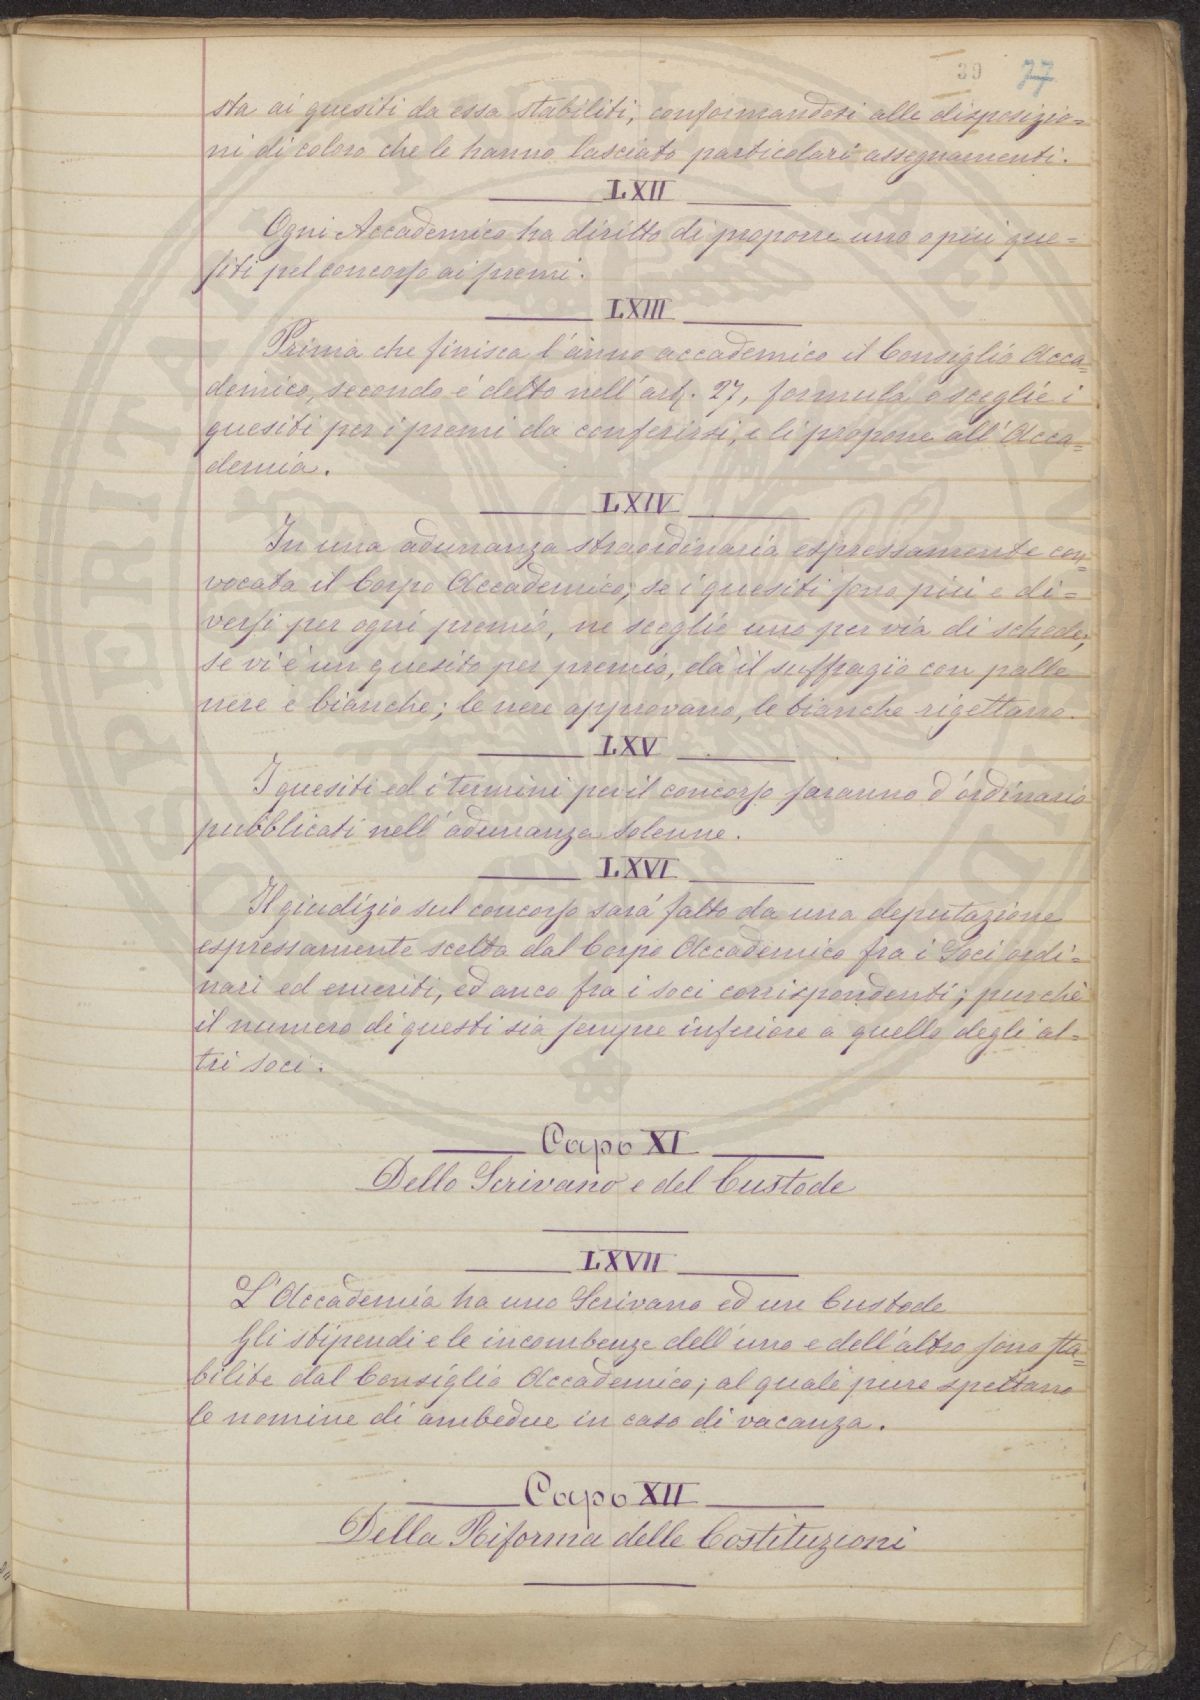 39 77
sta ai quesiti da essa stabiliti, conformandosi alle disposizio=
ni di coloro che le hanno lasciato particolari assegnamenti.
LXII
Ogni Accademico ha diritto di proporre uno o più que=
siti pel concorso ai premi.
LXIII
Prima che finisca l'anno accademico il Consiglio Acca=
demico, secondo è detto nell'art. 27, formula o sceglie i
quesiti per i premi da conferirsi, e li propone all'Acca=
demia.
LXIV
In una adunanza straordinaria espressamente con=
vocata il Corpo Accademico, se i quesiti sono più e di=
versi per ogni premio, ne sceglie uno per via di schede;
se vi è un quesito per premio, dà il suffragio con palle
nere e bianche; le nere approvano, le bianche rigettano.
LXV
I quesiti ed i termini per il concorso saranno d'ordinario
pubblicati nell'adunanza solenne.
LXVI
Il giudizio sul concorso sarà fatto da una deputazione
espressamente scelta dal Corpo Accademico fra i Soci ordi=
nari ed emeriti, ed anco fra i soci corrispondenti; purchè
il numero di questi sia sempre inferiore a quello degli al=
tri soci.
Capo XI
Dello Scrivano e del Custode
LXVII
L'Accademia ha uno Scrivano ed un Custode
Gli stipendi e le incombenze dell'uno e dell'altro sono sta=
bilite dal Consiglio Accademico; al quale pure spettano
le nomine di ambedue in caso di vacanza.
Capo XII
Della Riforma delle Costituzioni